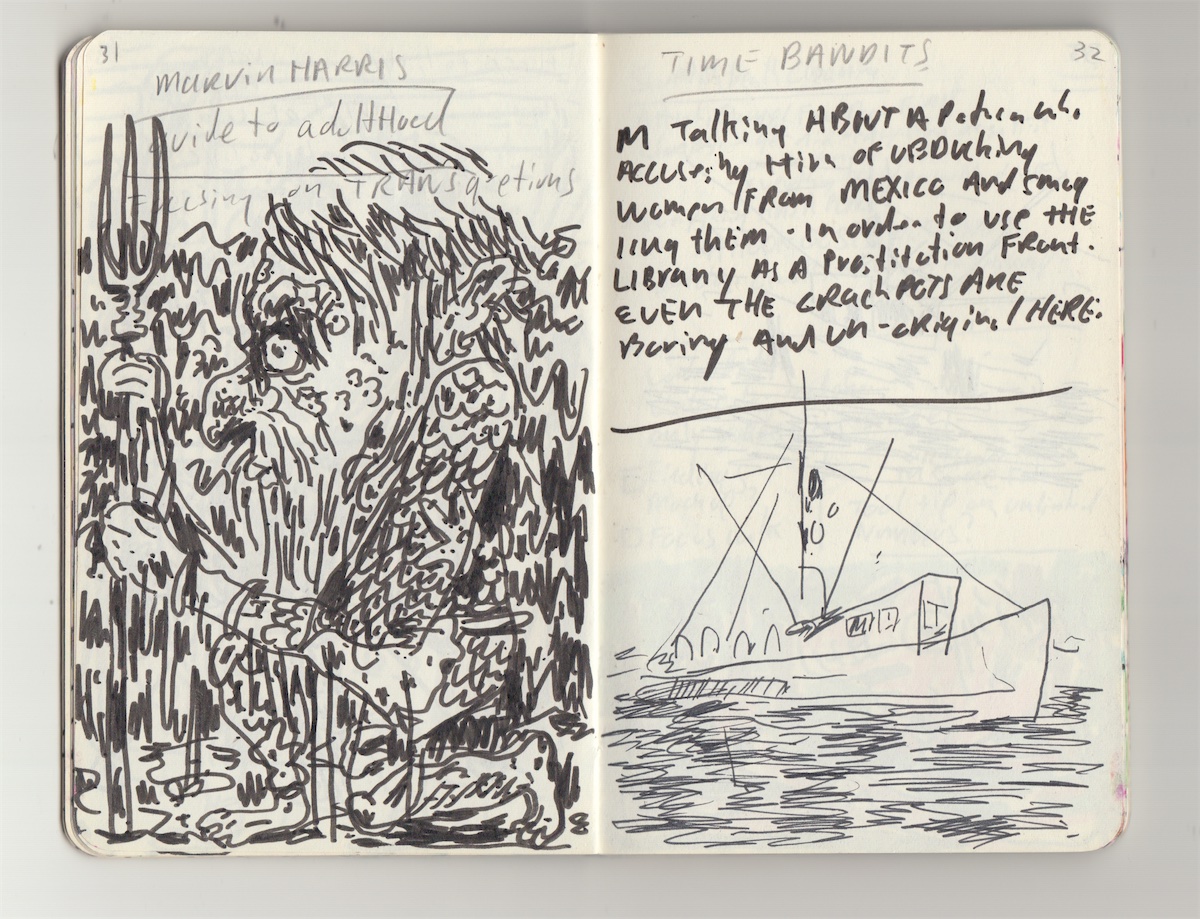 31
MARVIN HARRIS
Guide to adultHood
Focusing on TRANSgretions
TIME BANDITS
32
M Talking ABOUT A
ACCUSSING Him OF UBDUCHING
women FROM MEXICO And smug
ling them in order to use THE
LIBRARY AS A Prostitution Front.
EVEN THE CRACHPOTS ARE
Boring And UN-original HERE.